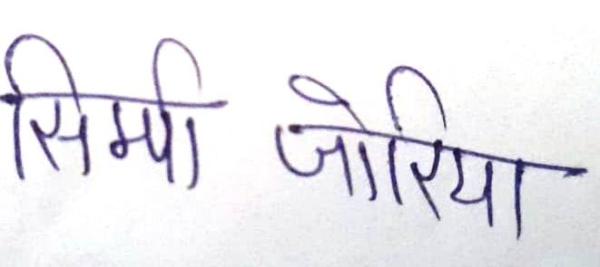 सिम्पी जोरिया